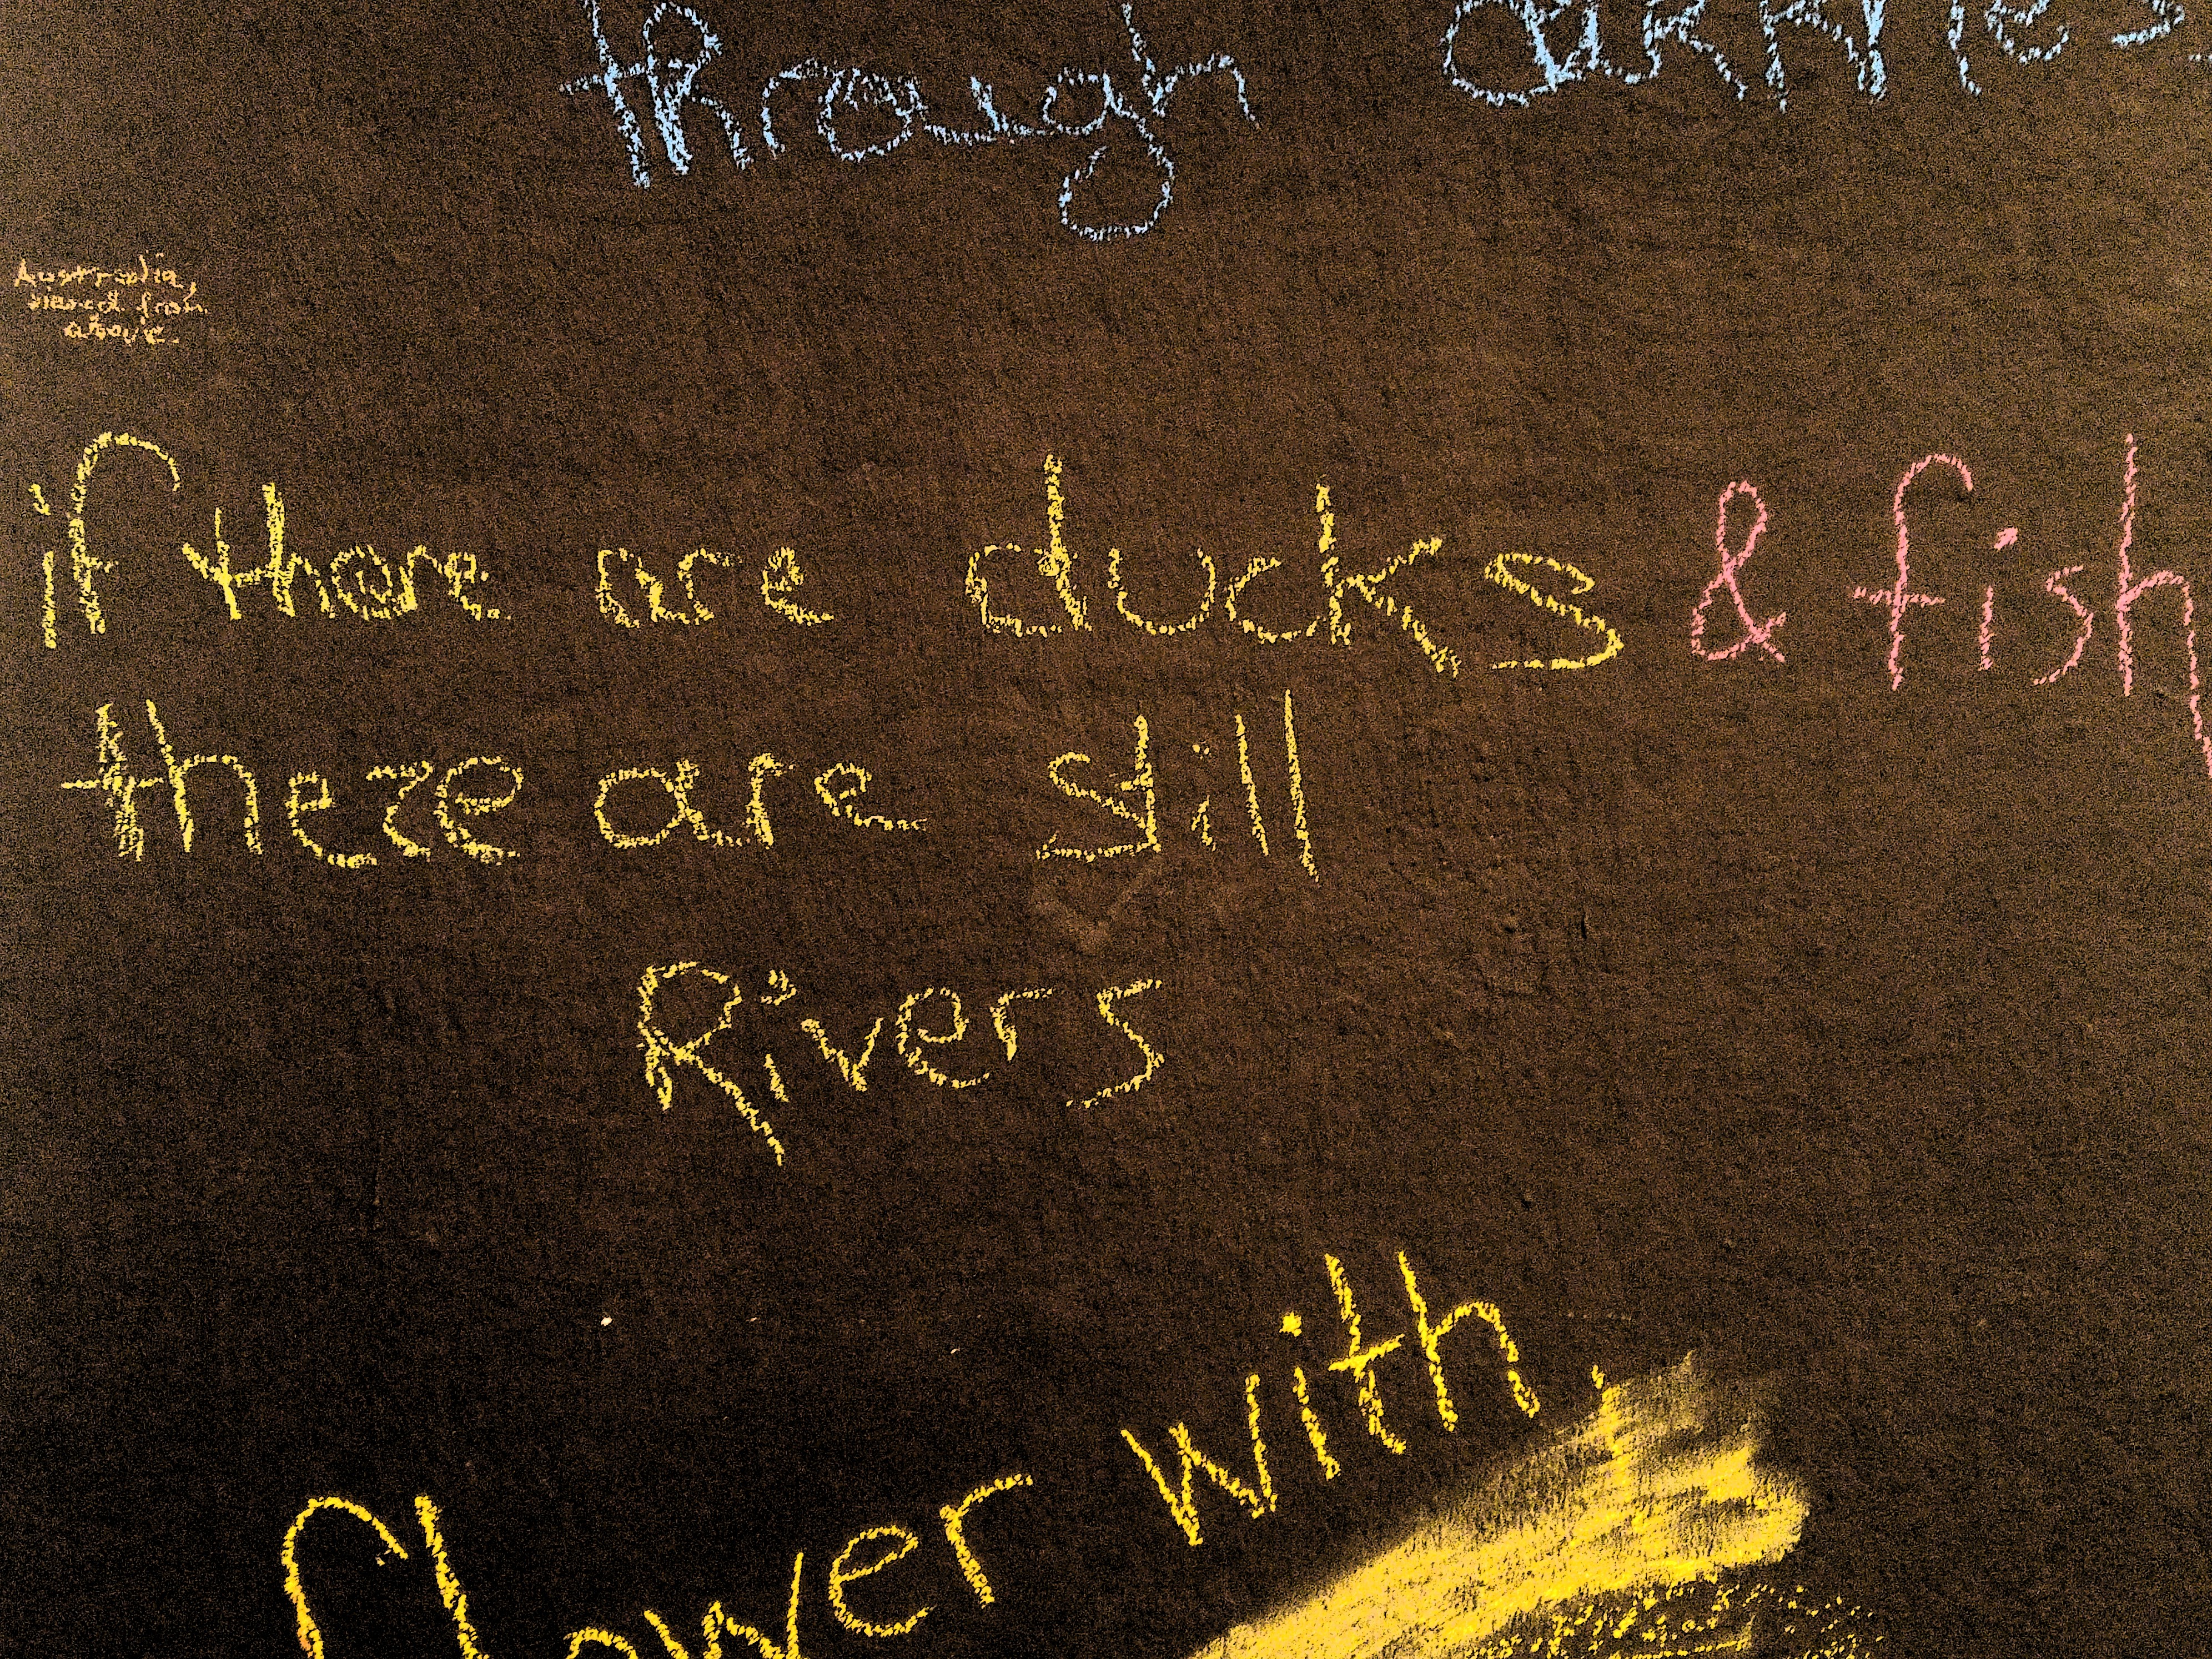 through darknes
Australia,
viewed from
above.
if there are ducks & fish
there are still
Rivers
flower with